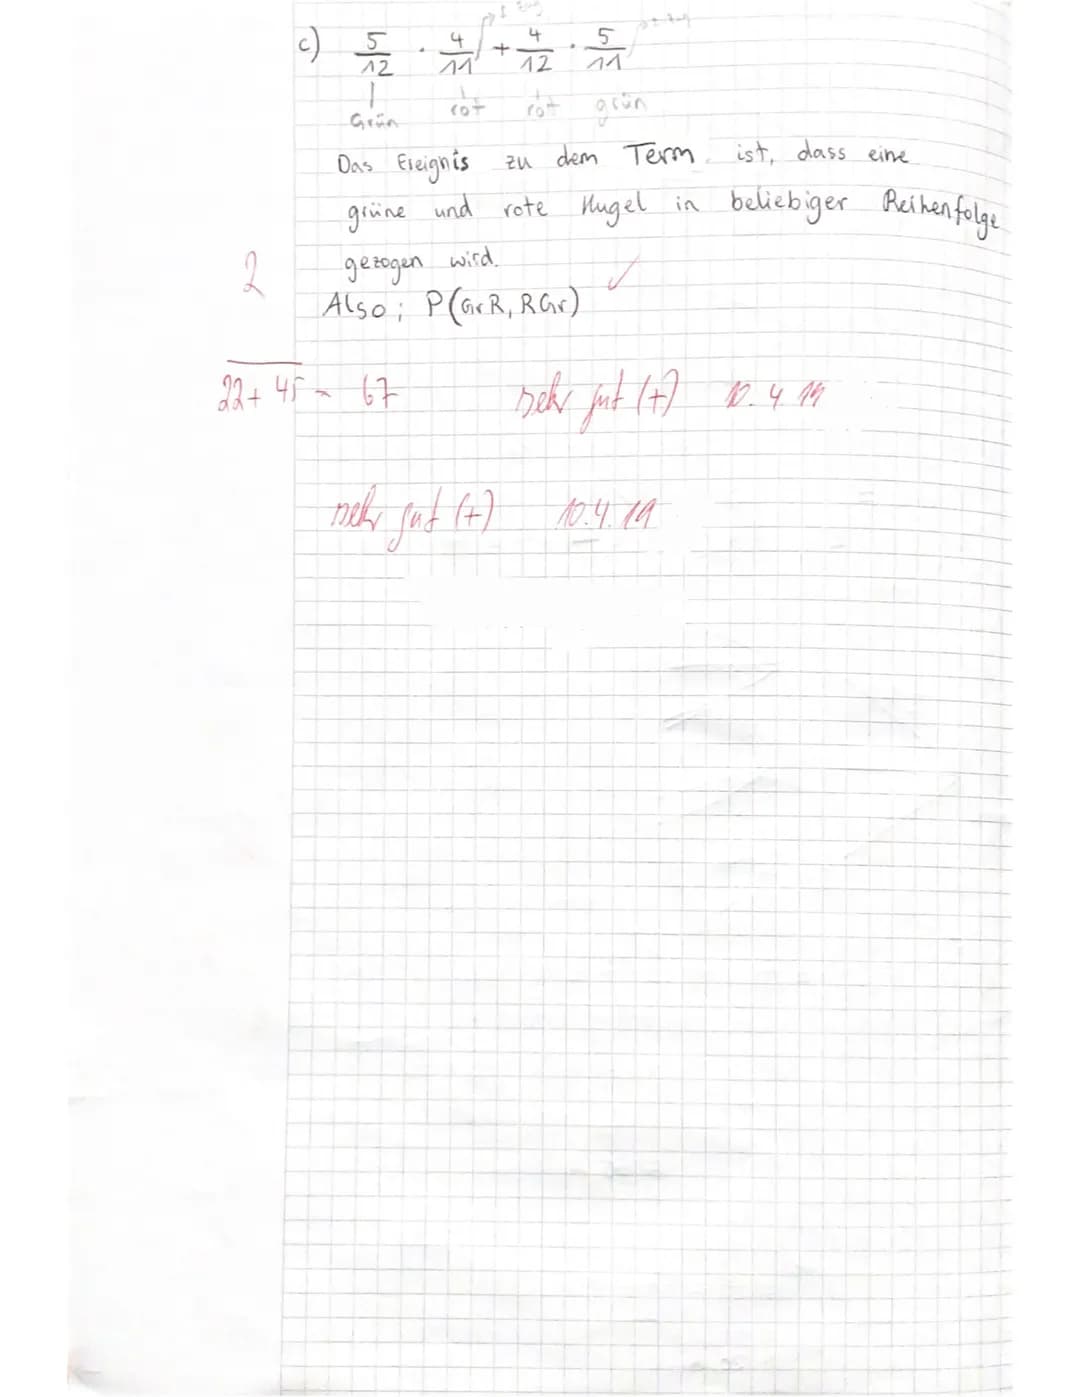 c) 5/12 · 4/11 + 4/12 · 5/11
Grün rot rot grün
Das Ereignis zu dem Term ist, dass eine
grüne und rote Kugel in beliebiger Reihenfolge
gezogen wird.
2
Also; P(GrR, RGr) ✓
22 + 45 = 67 sehr gut (+) 10.4.19
sehr gut (+) 10.4.19